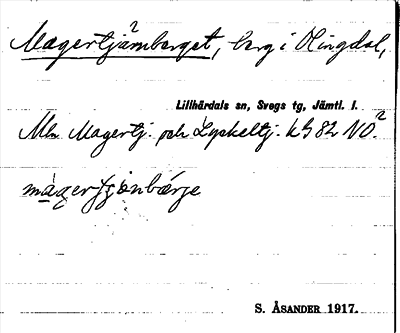 Magertjärnberget, berg i Olingdal,
Lillhärdals sn, Svegs tg, Jämtl. l.
Mln Magertj. och Lyskeltj. k582 NO.2
magertjønbärje
S. ÅSANDER 1917.